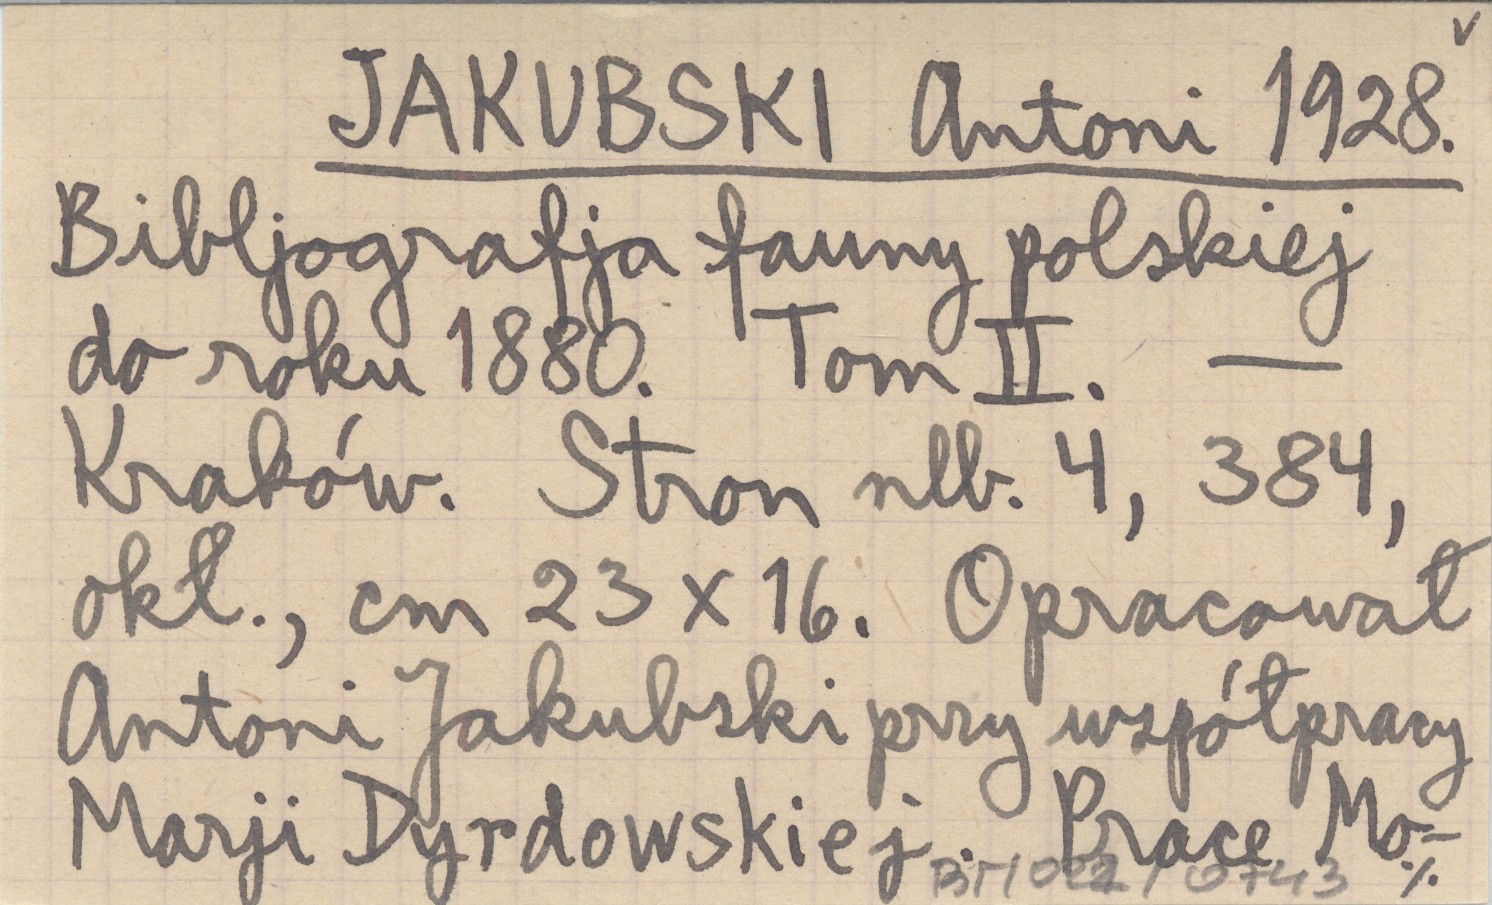 v
JAKUBSKI Antoni 1928.
Bibljografja fauny polskiej
do roku 1880. Tom II. —
Kraków. Stron nlb. 4, 384,
okł., cm 23 x 16. Opracował
Antoni Jakubski przy współpracy
Marji Dyrdowskiej. Prace Mo-
./.